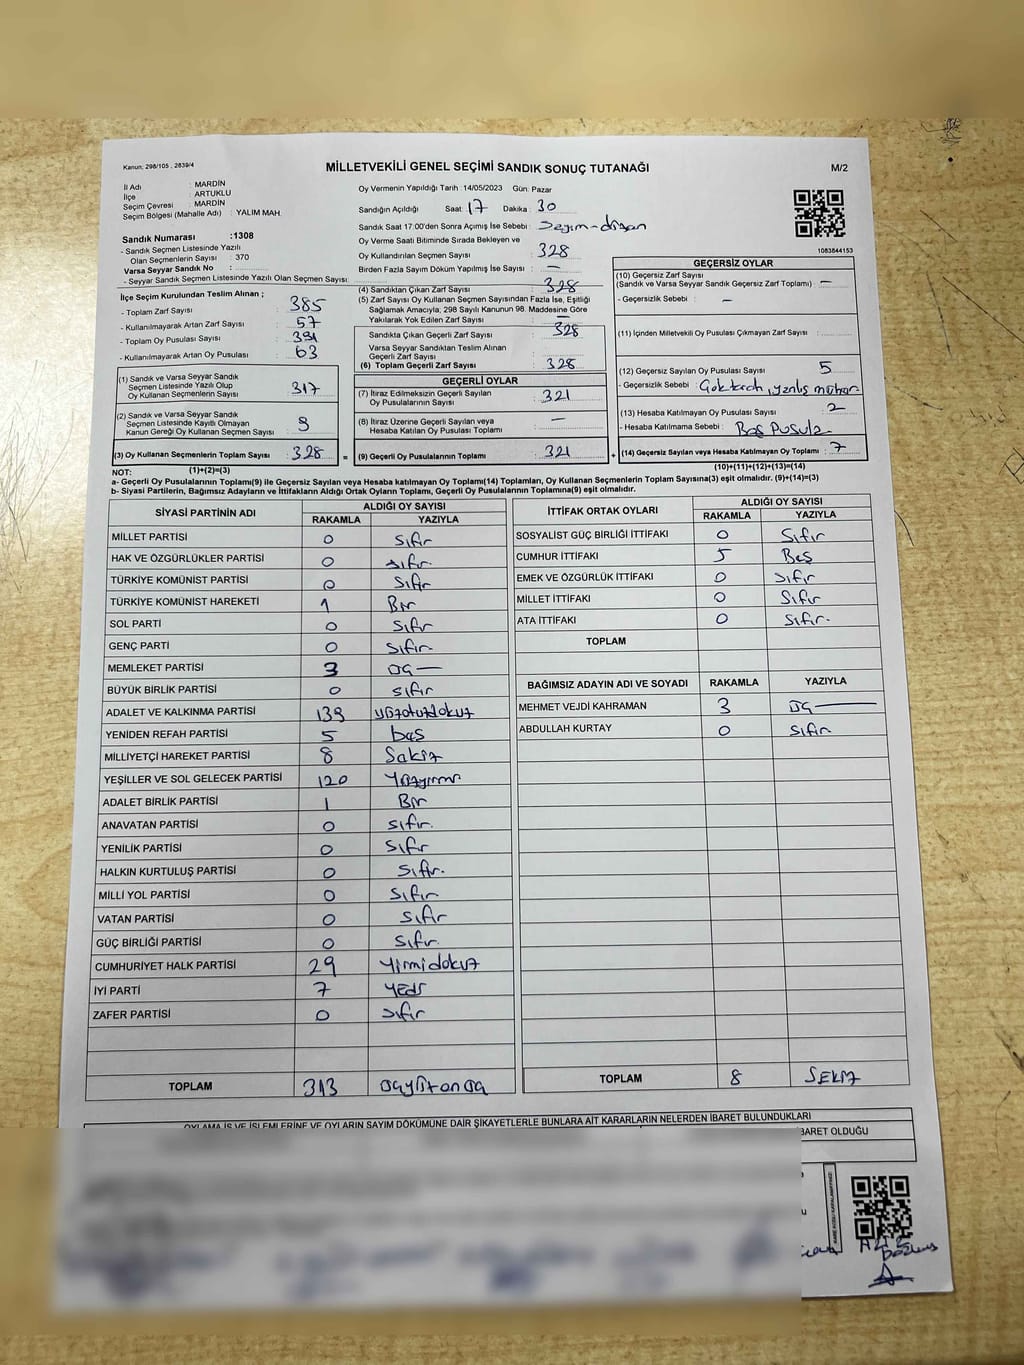 Kanun: 298/105 . 2839/4
MİLLETVEKİLİ GENEL SEÇİMİ SANDIK SONUÇ TUTANAĞI
M/2
İl Adı : MARDİN
İlçe : ARTUKLU
Seçim Çevresi : MARDİN
Seçim Bölgesi (Mahalle Adı) : YALIM MAH.
Sandık Numarası :1308
- Sandık Seçmen Listesinde Yazılı
Olan Seçmenlerin Sayısı : 370
Varsa Seyyar Sandık No :
- Seyyar Sandık Seçmen Listesinde Yazılı Olan Seçmen Sayısı :
Oy Vermenin Yapıldığı Tarih : 14/05/2023 Gün: Pazar
Sandığın Açıldığı Saat: 17 Dakika : 30
Sandık Saat 17:00'den Sonra Açımış İse Sebebi :
Oy Verme Saati Bitiminde Sırada Bekleyen ve
Oy Kullandırılan Seçmen Sayısı : 328
Birden Fazla Sayım Döküm Yapılmış İse Sayısı : —
1083844153
İlçe Seçim Kurulundan Teslim Alınan ;
- Toplam Zarf Sayısı : 385
- Kullanılmayarak Artan Zarf Sayısı : 57
- Toplam Oy Pusulası Sayısı : 391
- Kullanılmayarak Artan Oy Pusulası : 63
(1) Sandık ve Varsa Seyyar Sandık
Seçmen Listesinde Yazılı Olup
Oy Kullanan Seçmenlerin Sayısı : 317
(2) Sandık ve Varsa Seyyar Sandık
Seçmen Listesinde Kayıtlı Olmayan
Kanun Gereği Oy Kullanan Seçmen Sayısı :
(3) Oy Kullanan Seçmenlerin Toplam Sayısı : 328 =
(4) Sandıktan Çıkan Zarf Sayısı : 328
(5) Zarf Sayısı Oy Kullanan Seçmen Sayısından Fazla İse, Eşitliği
Sağlamak Amacıyla, 298 Sayılı Kanunun 98. Maddesine Göre
Yakılarak Yok Edilen Zarf Sayısı : —
Sandıkta Çıkan Geçerli Zarf Sayısı : 328
Varsa Seyyar Sandıktan Teslim Alınan
Geçerli Zarf Sayısı :
(6) Toplam Geçerli Zarf Sayısı : 328
GEÇERLİ OYLAR
(7) İtiraz Edilmeksizin Geçerli Sayılan
Oy Pusulalarının Sayısı : 321
(8) İtiraz Üzerine Geçerli Sayılan veya
Hesaba Katılan Oy Pusulası Toplamı : —
(9) Geçerli Oy Pusulalarının Toplamı : 321 +
GEÇERSİZ OYLAR
(10) Geçersiz Zarf Sayısı
(Sandık ve Varsa Seyyar Sandık Geçersiz Zarf Toplamı) : —
- Geçersizlik Sebebi : —
(11) İçinden Milletvekili Oy Pusulası Çıkmayan Zarf Sayısı :
(12) Geçersiz Sayılan Oy Pusulası Sayısı : 5
- Geçersizlik Sebebi : yanlış mühür
(13) Hesaba Katılmayan Oy Pusulası Sayısı : 2
- Hesaba Katılmama Sebebi : Boş Pusula
(14) Geçersiz Sayılan veya Hesaba Katılmayan Oy Toplamı : 7
NOT: (1)+(2)=(3)
(10)+(11)+(12)+(13)=(14)
a- Geçerli Oy Pusulalarının Toplamı(9) ile Geçersiz Sayılan veya Hesaba katılmayan Oy Toplamı(14) Toplamları, Oy Kullanan Seçmenlerin Toplam Sayısına(3) eşit olmalıdır. (9)+(14)=(3)
b- Siyasi Partilerin, Bağımsız Adayların ve İttifakların Aldığı Ortak Oyların Toplamı, Geçerli Oy Pusulalarının Toplamına(9) eşit olmalıdır.
SİYASİ PARTİNİN ADI
ALDIĞI OY SAYISI
RAKAMLA YAZIYLA
MİLLET PARTİSİ 0 sıfır
HAK VE ÖZGÜRLÜKLER PARTİSİ 0 sıfır
TÜRKİYE KOMÜNİST PARTİSİ 0 sıfır
TÜRKİYE KOMÜNİST HAREKETİ 1 Bir
SOL PARTİ 0 sıfır
GENÇ PARTİ 0 sıfır
MEMLEKET PARTİSİ 3 üç —
BÜYÜK BİRLİK PARTİSİ 0 sıfır
ADALET VE KALKINMA PARTİSİ 139 yüzotuzdokuz
YENİDEN REFAH PARTİSİ 5 beş
MİLLİYETÇİ HAREKET PARTİSİ 8 Sekiz
YEŞİLLER VE SOL GELECEK PARTİSİ 120 Yüzyirmi
ADALET BİRLİK PARTİSİ 1 Bir
ANAVATAN PARTİSİ 0 sıfır.
YENİLİK PARTİSİ 0 sıfır
HALKIN KURTULUŞ PARTİSİ 0 sıfır.
MİLLİ YOL PARTİSİ 0 sıfır
VATAN PARTİSİ 0 sıfır
GÜÇ BİRLİĞİ PARTİSİ 0 sıfır
CUMHURİYET HALK PARTİSİ 29 yirmidokuz
İYİ PARTİ 7 yedi
ZAFER PARTİSİ 0 sıfır
TOPLAM 313 üçyüzonüç
İTTİFAK ORTAK OYLARI
ALDIĞI OY SAYISI
RAKAMLA YAZIYLA
SOSYALİST GÜÇ BİRLİĞİ İTTİFAKI 0 Sıfır
CUMHUR İTTİFAKI 5 Beş
EMEK VE ÖZGÜRLÜK İTTİFAKI 0 sıfır
MİLLET İTTİFAKI 0 Sıfır
ATA İTTİFAKI 0 sıfır.
TOPLAM
BAĞIMSIZ ADAYIN ADI VE SOYADI RAKAMLA YAZIYLA
MEHMET VEJDİ KAHRAMAN 3 üç —
ABDULLAH KURTAY 0 sıfır
TOPLAM 8 SEKİZ
OYLAMA İŞ VE İŞLEMLERİNE VE OYLARIN SAYIM DÖKÜMÜNE DAİR ŞİKAYETLERLE BUNLARA AİT KARARLARIN NELERDEN İBARET BULUNDUKLARI
BARET OLDUĞU